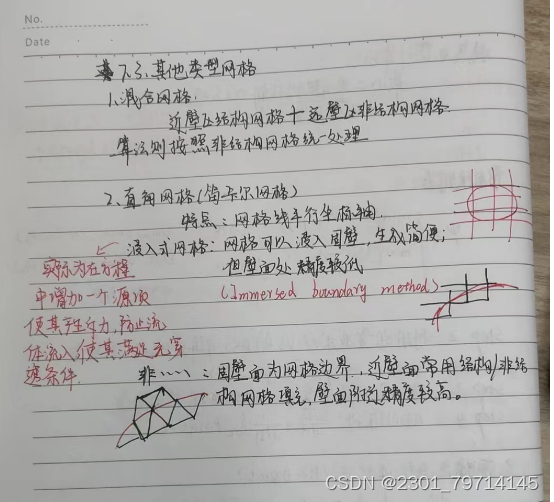 No.
Date
7.3.其他类型网格
1.混合网格.
近壁区结构网格+远壁区非结构网格.
算法则按照非结构网格统一处理
2.直角网格(笛卡尔网格)
特点:网格线平行坐标轴.
浸入式网格:网格可以浸入固壁,生成简便,
但壁面处精度较低
(Immersed boundary method)
实际为在方程
中增加一个源项
使其产生力,防止流
体流入使其满足无穿
透条件.
非……:固壁面为网格边界,近壁面常用结构/非结
构网格填充,壁面附近精度较高。
CSDN @2301_79714145